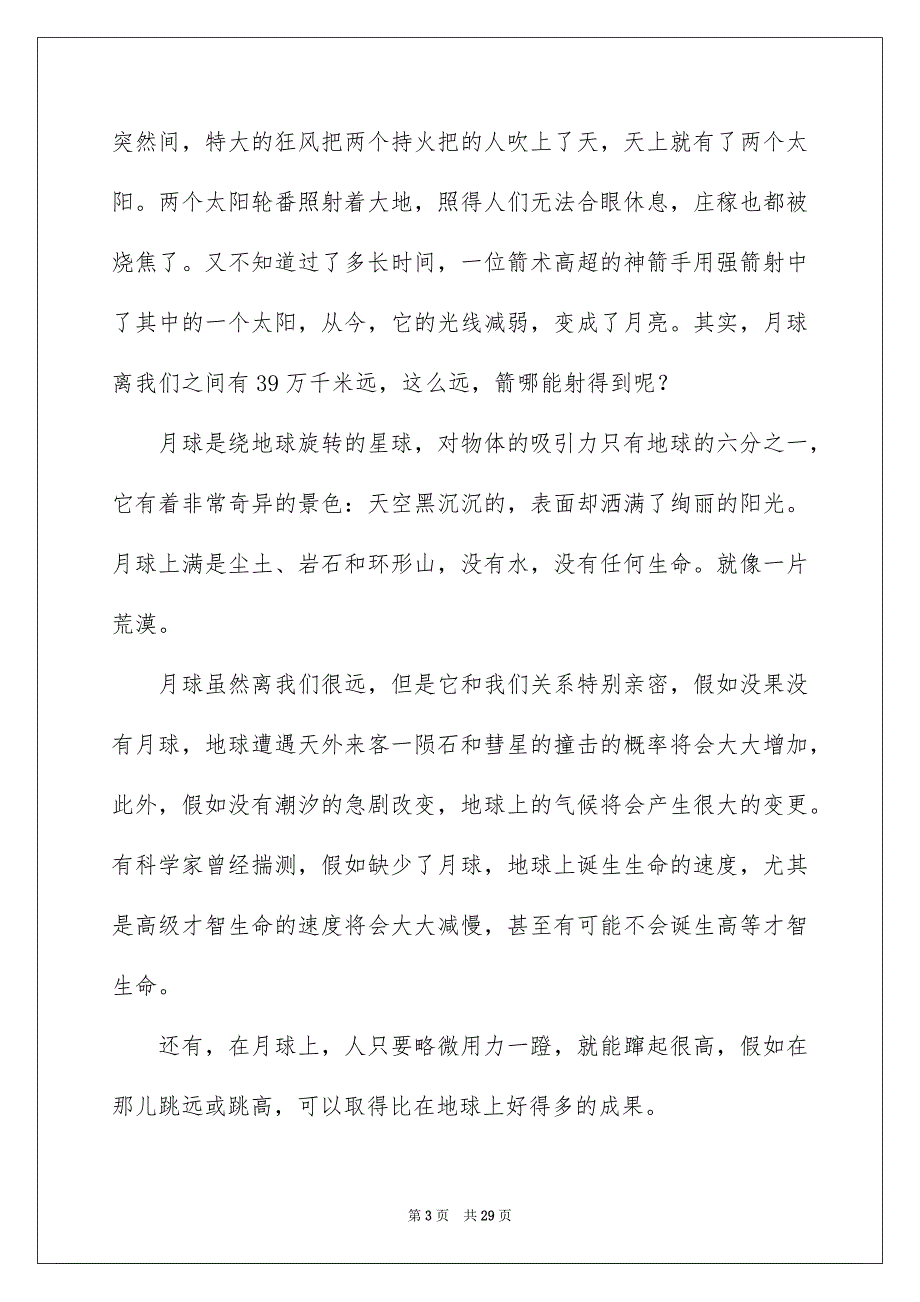 突然间，特大的狂风把两个持火把的人吹上了天，天上就有了两个太
阳。两个太阳轮番照射着大地，照得人们无法合眼休息，庄稼也都被
烧焦了。又不知道过了多长时间，一位箭术高超的神箭手用强箭射中
了其中的一个太阳，从今，它的光线减弱，变成了月亮。其实，月球
离我们之间有 39 万千米远，这么远，箭哪能射得到呢？
月球是绕地球旋转的星球，对物体的吸引力只有地球的六分之一，
它有着非常奇异的景色：天空黑沉沉的，表面却洒满了绚丽的阳光。
月球上满是尘土、岩石和环形山，没有水，没有任何生命。就像一片
荒漠。
月球虽然离我们很远，但是它和我们关系特别亲密，假如没果没
有月球，地球遭遇天外来客一陨石和彗星的撞击的概率将会大大增加，
此外，假如没有潮汐的急剧改变，地球上的气候将会产生很大的变更。
有科学家曾经揣测，假如缺少了月球，地球上诞生生命的速度，尤其
是高级才智生命的速度将会大大减慢，甚至有可能不会诞生高等才智
生命。
还有，在月球上，人只要略微用力一蹬，就能蹿起很高，假如在
那儿跳远或跳高，可以取得比在地球上好得多的成果。
第 3 页 共 29 页